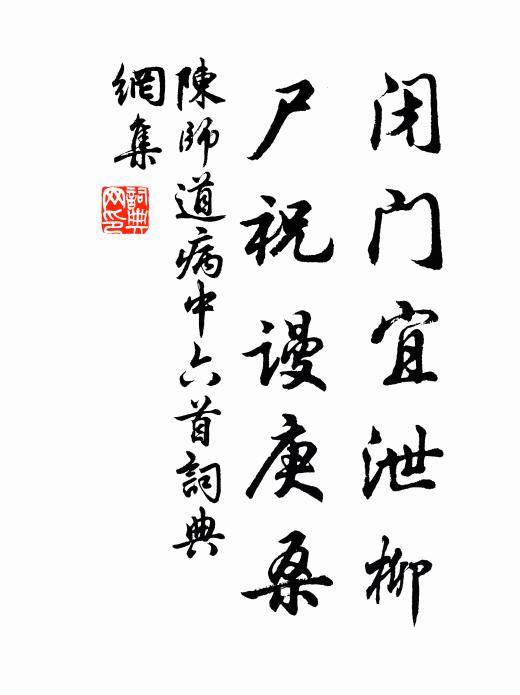 闭门宜泄柳
尸祝谩庚桑
陳師道病中六首詞典
網集
詞典
网印